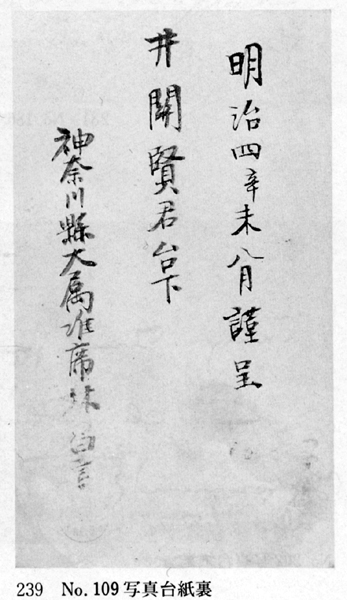 明治四辛未八月謹呈
井關賢君台下
神奈川縣大属准席林
239 No.109写真台紙裏